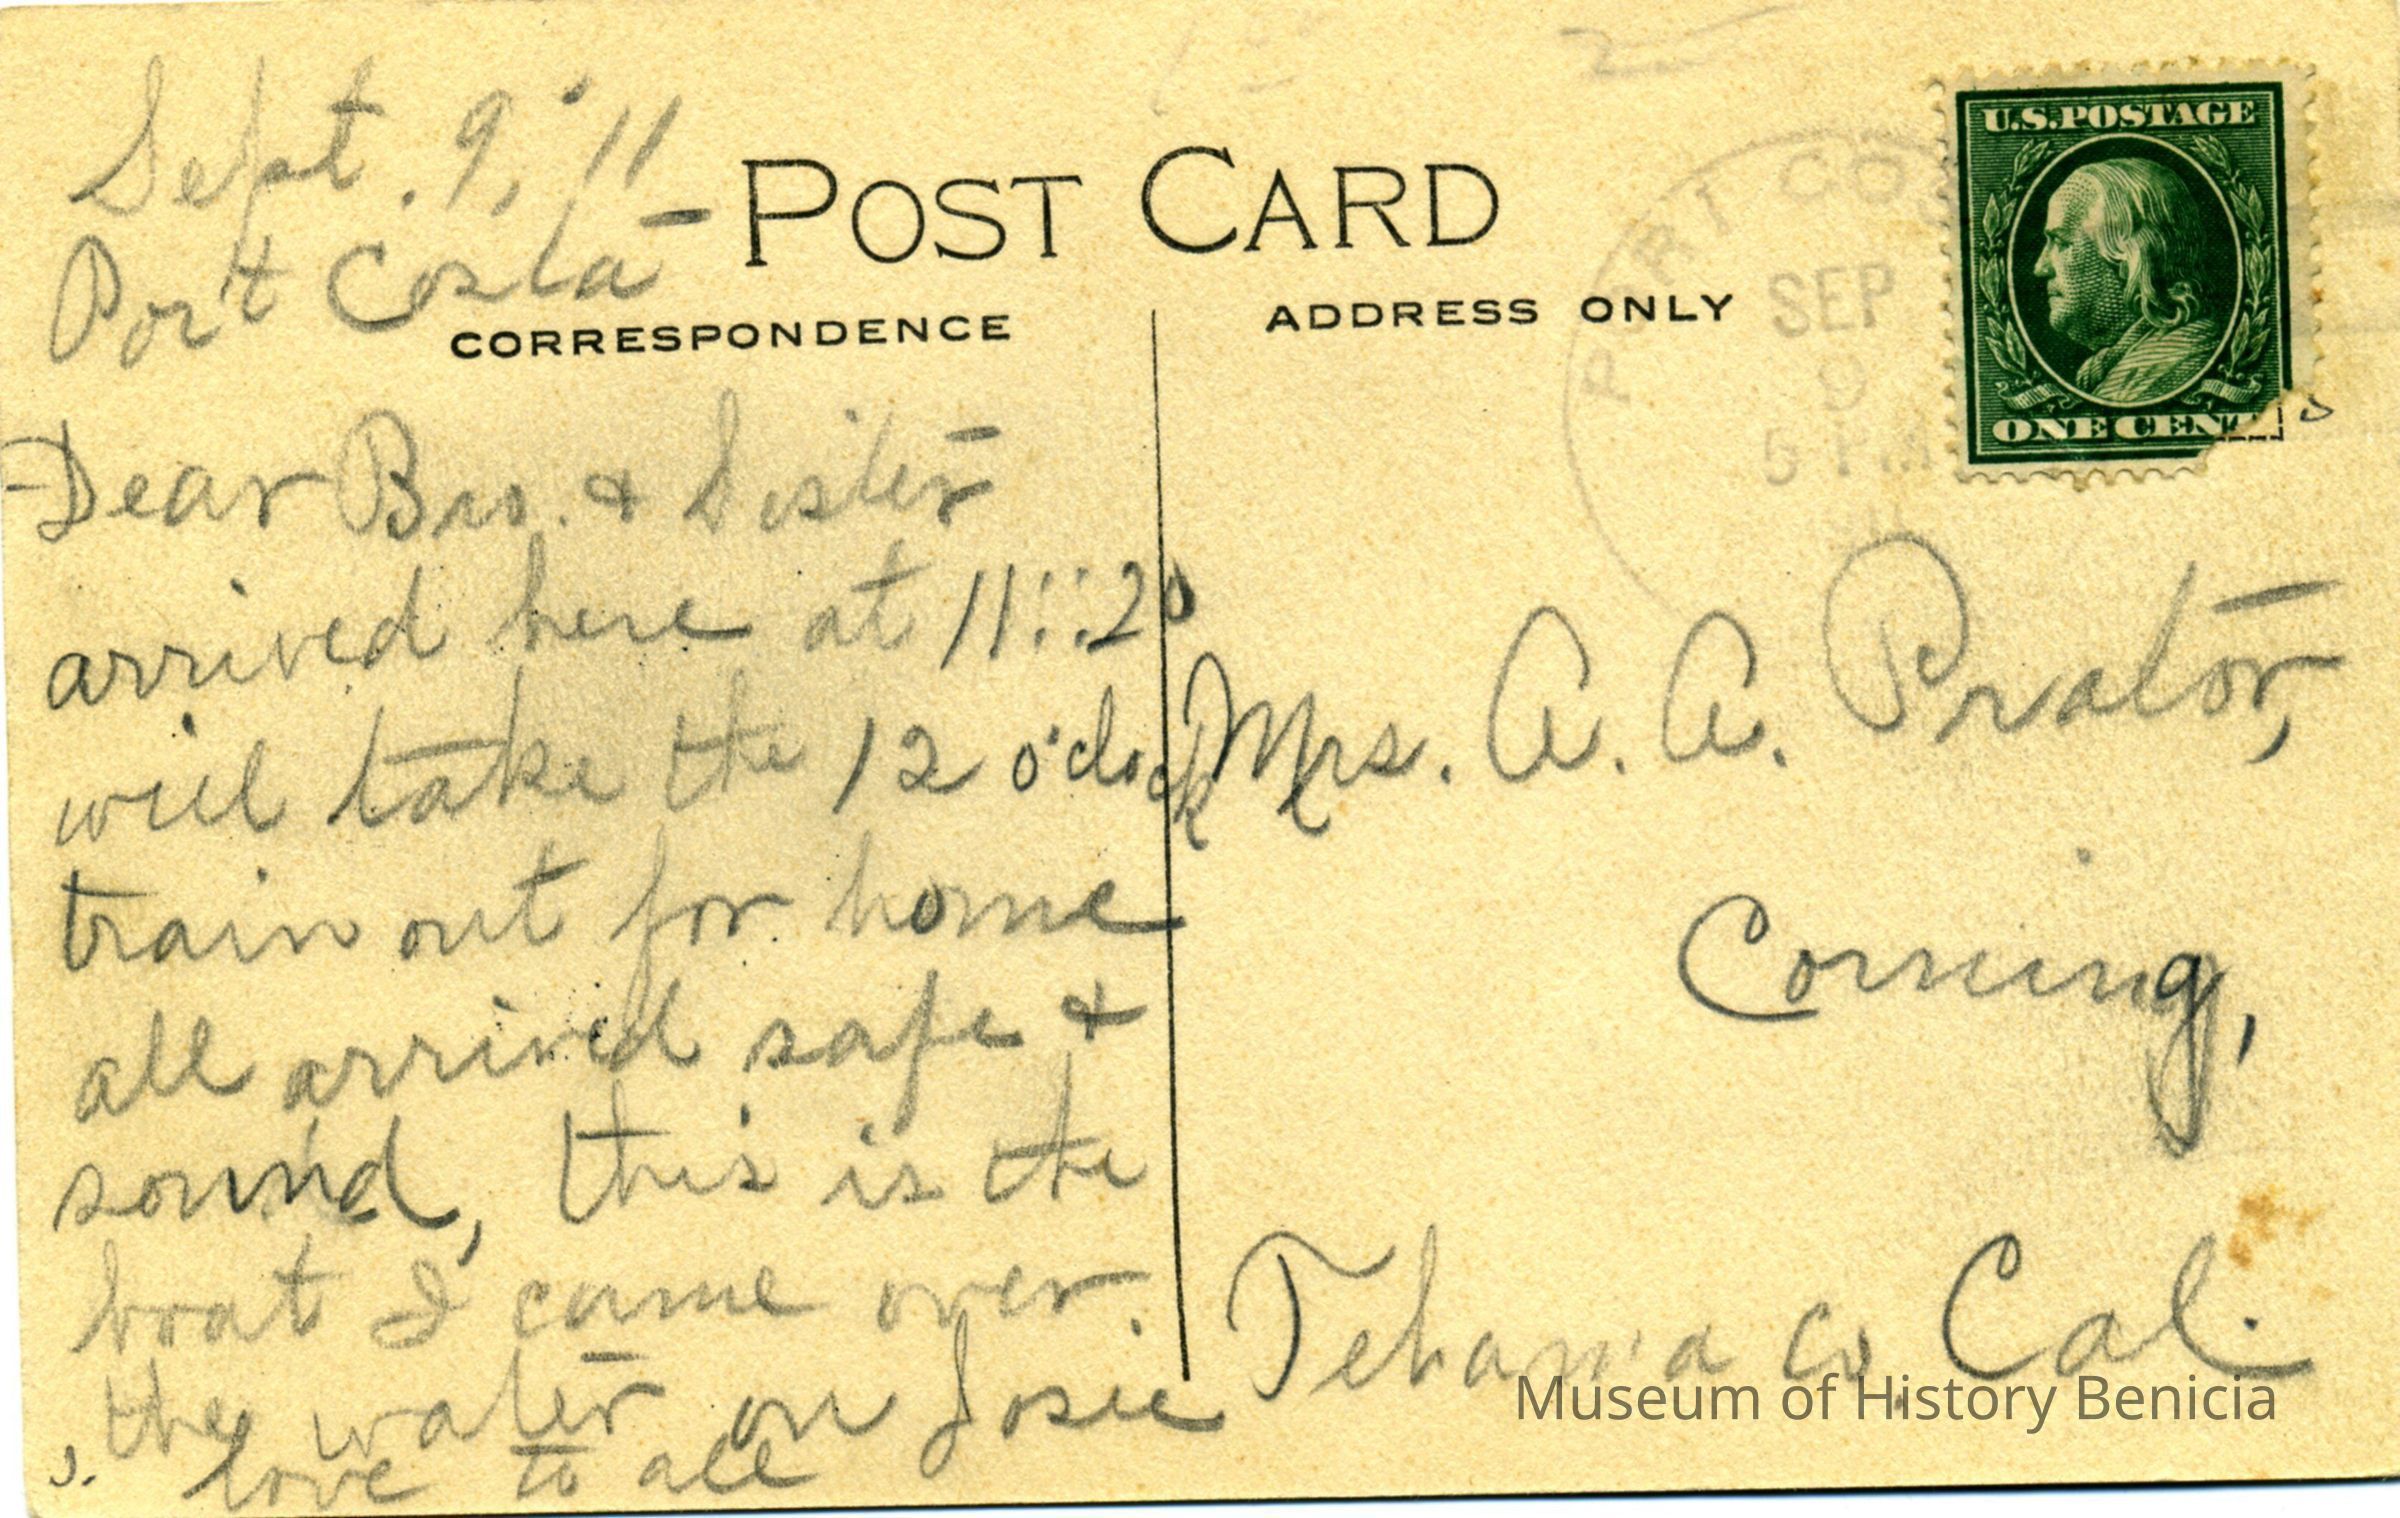 Sept. 9, '11
Port Costa
POST CARD
CORRESPONDENCE
Dear Bro. & Sister
arrived here at 11::20
will take the 12 o'clock
train out for home
all arrived safe &
sound, this is the
boat I came over
the water on Josie
love to all
ADDRESS ONLY
PORT CO
SEP
9
5 PM
U.S. POSTAGE
ONE CENT
Mrs. A. A. Prator,
Corning,
Tehama Co. Cal.
Museum of History Benicia